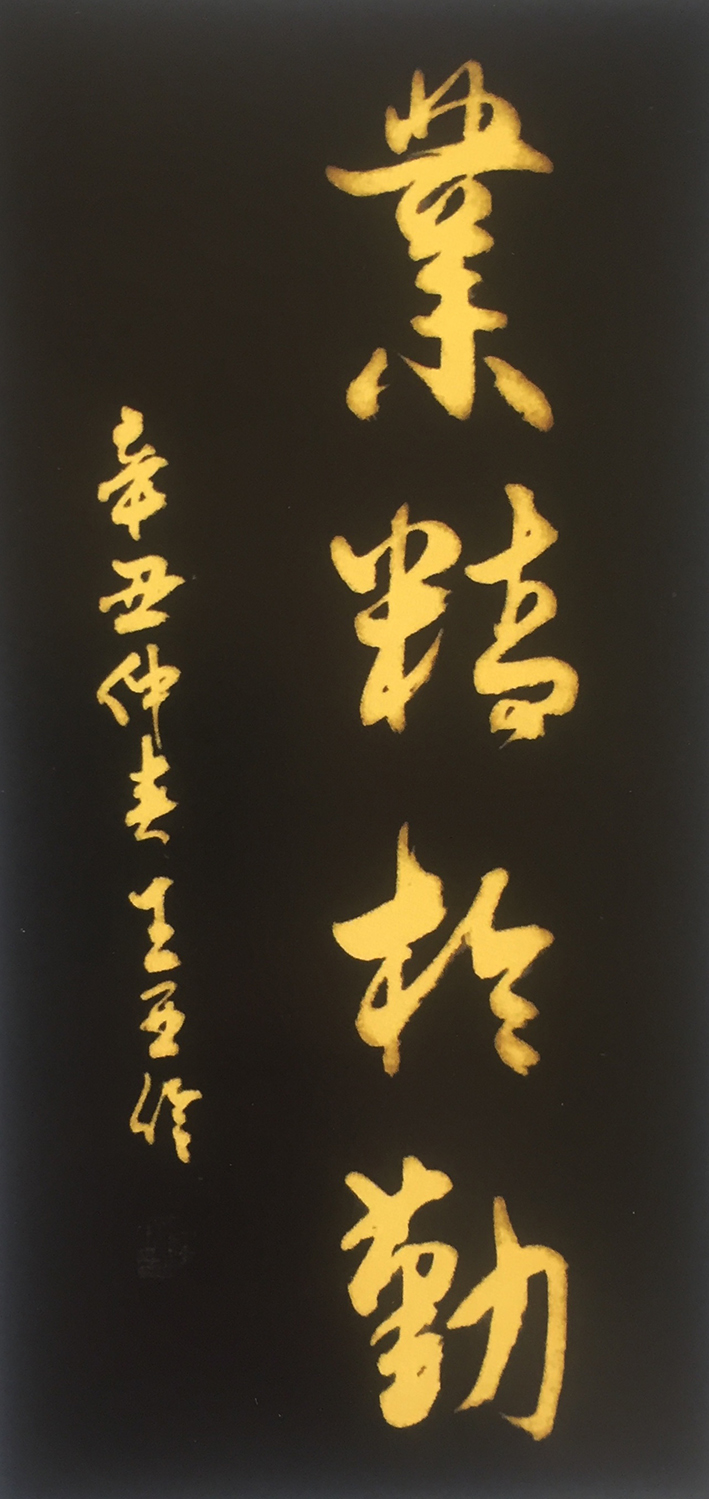 業精於勤
辛丑仲春王玉